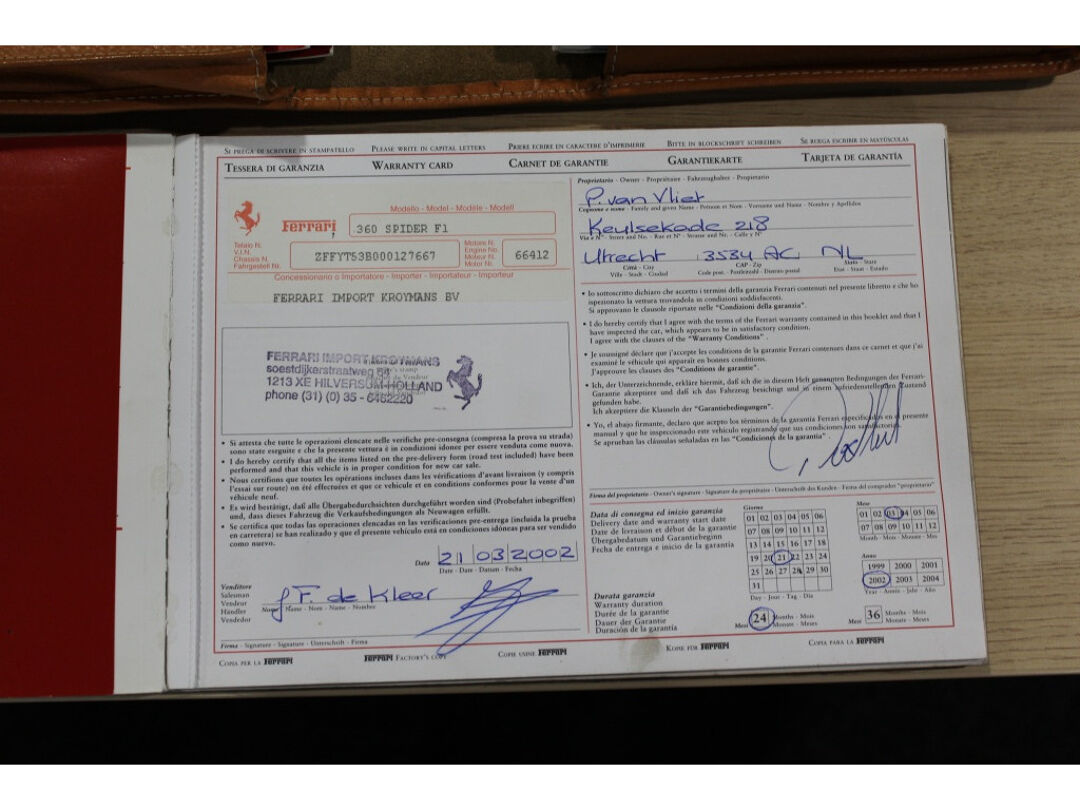 SI PREGA DI SCRIVERE IN STAMPATELLO PLEASE WRITE IN CAPITAL LETTERS PRIERE ECRIRE EN CARACTERE D'IMPRIMERIE BITTE IN BLOCKSCHRIFT SCHREIBEN SE RUEGA ESCRIBIR EN MAYÚSCULAS
TESSERA DI GARANZIA WARRANTY CARD CARNET DE GARANTIE GARANTIEKARTE TARJETA DE GARANTÍA
Modello - Model - Modèle - Modell
Ferrari 360 SPIDER F1
Telaio N.
V.I.N.
Chassis N.
Fahrgestell Nr.
ZFFYT53B000127667
Motore N.
Engine No.
Moteur N.
Motor Nr.
66412
Concessionario o Importatore - Importer - Importateur - Importeur
FERRARI IMPORT KROYMANS BV
FERRARI IMPORT KROYMANS
soestdijkerstraatweg 64
1213 XE HILVERSUM-HOLLAND
phone (31) (0) 35 - 6462220
• Si attesta che tutte le operazioni elencate nelle verifiche pre-consegna (compresa la prova su strada)
sono state eseguite e che la presente vettura è in condizioni idonee per essere venduta come nuova.
• I do hereby certify that all the items listed on the pre-delivery form (road test included) have been
performed and that this vehicle is in proper condition for new car sale.
• Nous certifions que toutes les opérations incluses dans les vérifications d'avant livraison (y compris
l'essai sur route) on été effectuées et que ce véhicule est en conditions conformes pour la vente d'un
véhicule neuf.
• Es wird bestätigt, daß alle Übergabedurchsichten durchgeführt worden sind (Probefahrt inbegriffen)
und, dass dieses Fahrzeug die Verkaufsbedingungen als Neuwagen erfüllt.
• Se certifica que todas las operaciones elencadas en las verificaciones pre-entrega (incluida la prueba
en carretera) se han realizado y que el presente vehículo está en condiciones idóneas para ser vendido
como nuevo.
Data 21 03 2002
Date - Date - Datum - Fecha
Venditore
Salesman
Vendeur
Händler
Vendedor
J F. de Kleer
Nome - Name - Nom - Name - Nombre
Firma - Signature - Signature - Unterschrift - Firma
Proprietario - Owner - Propriétaire - Fahrzeughalter - Propietario
P. van Vliet
Cognome e nome - Family and given Name - Prénom et Nom - Vorname und Name - Nombre y Apellidos
Keulsekade 218
Via e N° - Street and No. - Rue et N° - Strasse und No. - Calle y N°
Utrecht 3534 AC NL
Città - City
Ville - Stadt - Ciudad
CAP - Zip
Code post. - Postleitzahl - Distrito postal
Stato - State
Etat - Staat - Estado
• Io sottoscritto dichiaro che accetto i termini della garanzia Ferrari contenuti nel presente libretto e che ho
ispezionato la vettura trovandola in condizioni soddisfacenti.
Si approvano le clausole riportate nelle "Condizioni della garanzia".
• I do hereby certify that I agree with the terms of the Ferrari warranty contained in this booklet and that I
have inspected the car, which appears to be in satisfactory condition.
I agree with the clauses of the "Warranty Conditions" .
• Je soussigné déclare que j'accepte les conditions de la garantie Ferrari contenues dans ce carnet et que j'ai
examiné le véhicule qui apparaît en bonnes conditions.
J'approuve les clauses des "Conditions de garantie".
• Ich, der Unterzeichnende, erkläre hiermit, daß ich die in diesem Heft genannten Bedingungen der Ferrari-
Garantie akzeptiere und daß ich das Fahrzeug besichtigt und in einem zufriedenstellenden Zustand
gefunden habe.
Ich akzeptiere die Klauseln der "Garantiebedingungen".
• Yo, el abajo firmante, declaro que acepto los términos de la garantía Ferrari especificados en el presente
manual y que he inspeccionado este vehículo registrando que sus condiciones son satisfactorias.
Se aprueban las cláusulas señaladas en las "Condiciones de la garantía" .
Firma del proprietario - Owner's signature - Signature du propriétaire - Unterschrift des Kunden - Firma del comprados "propietario"
Data di consegna ed inizio garanzia
Delivery date and warranty start date
Date de livraison et début de la garantie
Übergabedatum und Garantiebeginn
Fecha de entrega e inicio de la garantía
Giorno
01 02 03 04 05 06
07 08 09 10 11 12
13 14 15 16 17 18
19 20 21 22 23 24
25 26 27 28 29 30
31
Day - Jour - Tag - Dia
Mese
01 02 03 04 05 06
07 08 09 10 11 12
Month - Mois - Monate - Mes
Anno
1999 2000 2001
2002 2003 2004
Year - Année - Jahr - Año
Durata garanzia
Warranty duration
Durée de la garantie
Dauer der Garantie
Duración de la garantía
Mesi 24 Months - Mois
Monate - Meses
Mesi 36 Months - Mois
Monate - Meses
COPIA PER LA FERRARI FERRARI FACTORY'S COPY COPIE USINE FERRARI KOPIE FÜR FERRARI COPIA PARA LA FERRARI